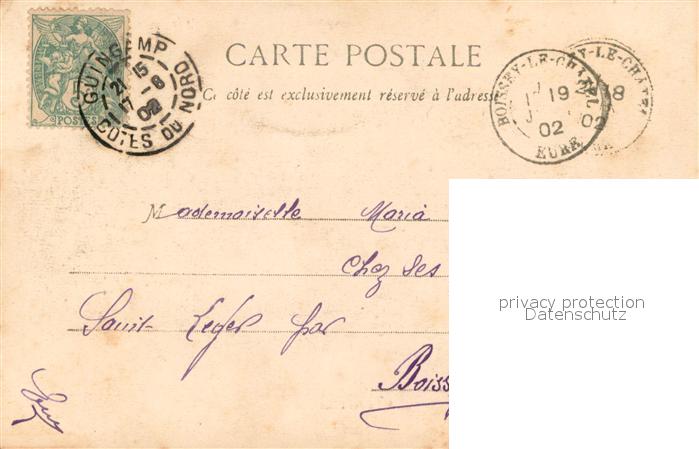 CARTE POSTALE
Ce côté est exclusivement réservé à l'adresse
GUINGAMP
21 15
17 - 8
02
COTES DU NORD
POSTES
BOISSEY-LE-CHATEL
19
02
EURE
Y-LE-CHATEL
8
02
Mademoiselle Maria
Chez Ses
Saint-Leger par
Boiss
privacy protection
Datenschutz